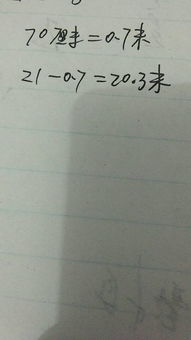 70厘米=0.7米
21-0.7=20.3米